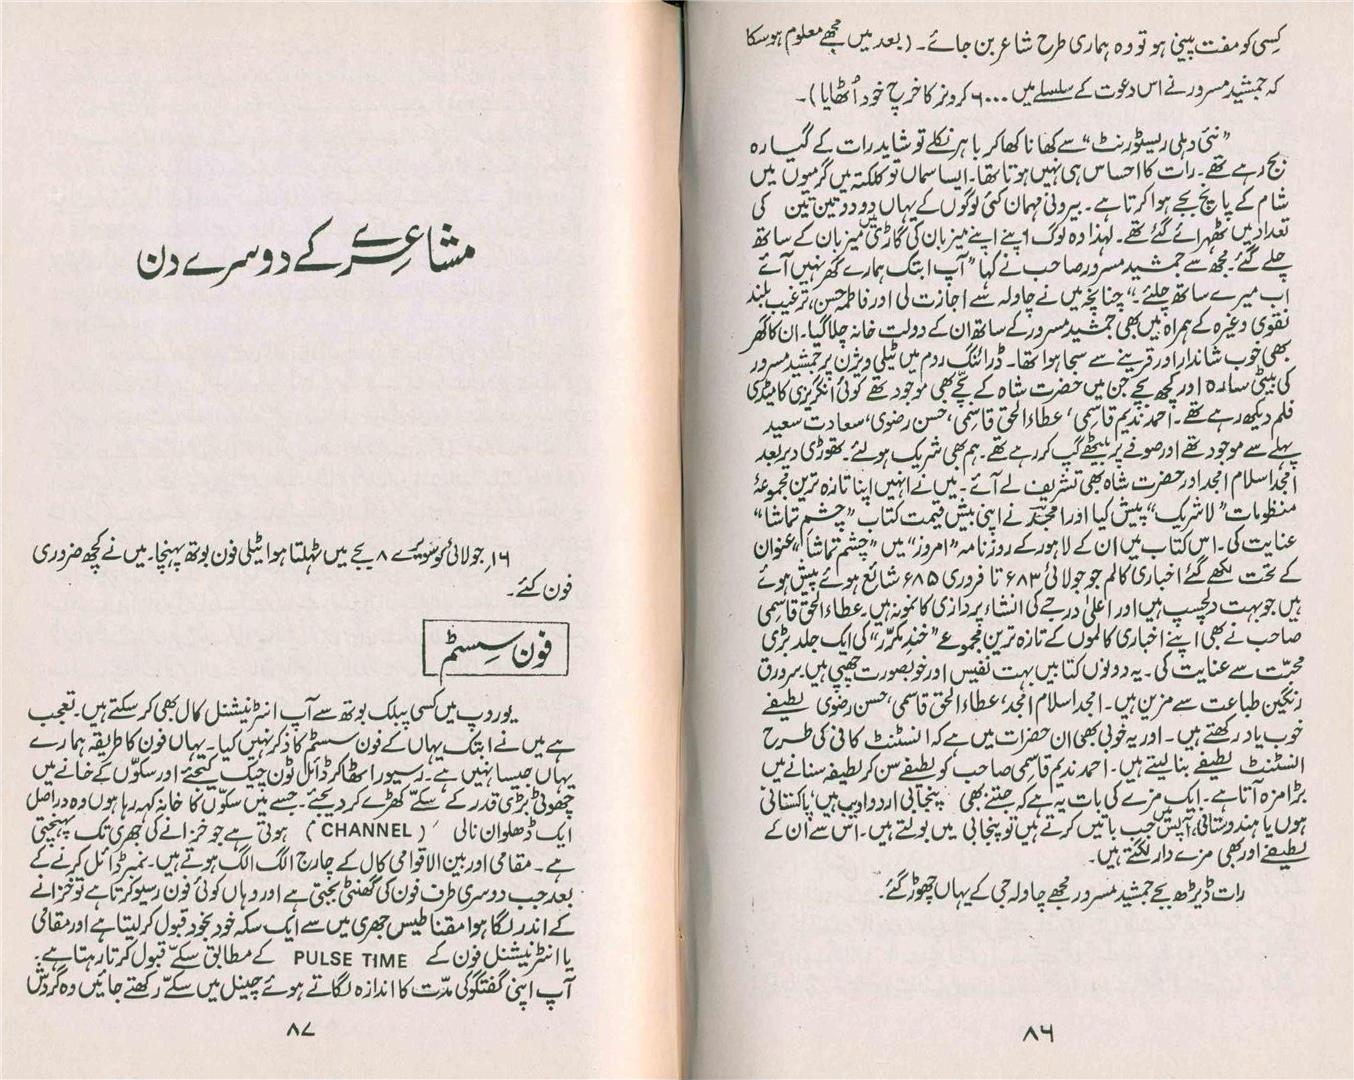 کسی کو مفت پینی ہو تو وہ ہماری طرح شاعر بن جائے۔ (بعد میں مجھے معلوم ہو سکا
کہ جمشید مسرور نے اس دعوت کے سلسلے میں ۶۰۰۰ کرونر کا خرچ خود اُٹھایا)۔
”نئی دہلی ریسٹورنٹ“ سے کھانا کھا کر باہر نکلے تو شاید رات کے گیارہ
بج رہے تھے۔ رات کا احساس ہی نہیں ہوتا تھا۔ ایسا سماں تو کلکتہ میں گرمیوں میں
شام کے پانچ بجے ہوا کرتا ہے۔ بیرونی مہمان کئی لوگوں کے یہاں دو دو تین تین کی
تعداد میں ٹھہرائے گئے تھے۔ لہٰذا وہ لوگ اپنے اپنے میزبان کی گاڑی میں میزبان کے ساتھ
چلے گئے۔ مجھ سے جمشید مسرور صاحب نے کہا ”آپ ابتک ہمارے گھر نہیں آئے
اب میرے ساتھ چلئے۔“ چنانچہ میں نے چاولہ سے اجازت لی اور فاطمہ حسن، ترغیب بلند
نقوی وغیرہ کے ہمراہ میں بھی جمشید مسرور کے ساتھ ان کے دولت خانہ چلا گیا۔ ان کا گھر
بھی خوب شاندار اور قرینے سے سجا ہوا تھا۔ ڈرائنگ روم میں ٹیلی ویژن پر جمشید مسرور
کی بیٹی سارہ اور کچھ بچے جن میں حضرت شاہ کے بچے بھی موجود تھے کوئی انگریزی کامیڈی
فلم دیکھ رہے تھے۔ احمد ندیم قاسمی، عطاء الحق قاسمی، حسن رضوی، سعادت سعید
پہلے سے موجود تھے اور صوفے پر بیٹھے گپ کر رہے تھے۔ ہم بھی شریک ہو لئے۔ تھوڑی دیر بعد
امجد اسلام امجد اور حضرت شاہ بھی تشریف لے آئے۔ میں نے انہیں اپنا تازہ ترین مجموعۂ
منظومات ”لاشریک“ پیش کیا اور امجد نے اپنی بیش قیمت کتاب ”چشم تماشا“
عنایت کی۔ اس کتاب میں ان کے لاہور کے روزنامہ ”امروز“ میں ”چشم تماشا“ عنوان
کے تحت لکھے گئے اخباری کالم جو جولائی ۸۳ء تا فروری ۸۵ء شائع ہوئے پیش ہوئے
ہیں جو بہت دلچسپ ہیں اور اعلیٰ درجے کی انشاء پردازی کا نمونہ ہیں۔ عطاء الحق قاسمی
صاحب نے بھی اپنے اخباری کالموں کے تازہ ترین مجموعے ”خند مکرّر“ کی ایک جلد بڑی
محبّت سے عنایت کی۔ یہ دونوں کتابیں بہت نفیس اور خوبصورت چھپی ہیں۔ سرورق
رنگین طباعت سے مزین ہیں۔ امجد اسلام امجد، عطاء الحق قاسمی، حسن رضوی لطیفے
خوب یاد رکھتے ہیں۔ اور یہ خوبی بھی ان حضرات میں ہے کہ انسٹنٹ کافی کی طرح
انسٹنٹ لطیفے بنا لیتے ہیں۔ احمد ندیم قاسمی صاحب کو لطیفے سن کر لطیفہ سنانے میں
بڑا مزہ آتا ہے۔ ایک مزے کی بات یہ ہے کہ جتنے بھی پنجابی اردو ادیب ہیں، پاکستانی
ہوں یا ہندوستانی، آپس میں جب باتیں کرتے ہیں تو پنجابی میں بولتے ہیں۔ اس سے ان کے
لطیفے اور بھی مزے دار لگتے ہیں۔
رات ڈیڑھ بجے جمشید مسرور مجھے چاولہ جی کے یہاں چھوڑ گئے۔
۸۶
مشاعرے کے دوسرے دن
۱۶ر جولائی کو سویرے ۸ بجے میں ٹہلتا ہوا ٹیلی فون بوتھ پہنچا۔ میں نے کچھ ضروری
فون کئے۔
فون سسٹم
یوروپ میں کسی پبلک بوتھ سے آپ انٹرنیشنل کال بھی کر سکتے ہیں۔ تعجب
ہے میں نے ابتک یہاں کے فون سسٹم کا ذکر نہیں کیا۔ یہاں فون کا طریقہ ہمارے
یہاں جیسا نہیں ہے۔ رسیور اٹھا کر ڈائل ٹون چیک کیجئے اور سکوّں کے خانے میں
چھوٹی بڑی قدر کے سکّے کھڑے کر دیجئے۔ جسے میں سکوّں کا خانہ کہہ رہا ہوں وہ دراصل
ایک ڈھلوان نالی (CHANNEL) ہوتی ہے جو خزانے کی جھری تک پہنچتی
ہے۔ مقامی اور بین الاقوامی کال کے چارج الگ الگ ہوتے ہیں۔ نمبر ڈائل کرنے کے
بعد جب دوسری طرف فون کی گھنٹی بجتی ہے اور وہاں کوئی فون رسیو کرتا ہے تو خزانے
کے اندر لگا ہوا مقناطیس جھری میں سے ایک سکہ خود بخود قبول کر لیتا ہے اور مقامی
یا انٹرنیشنل فون کے PULSE TIME کے مطابق سکّے قبول کرتا رہتا ہے۔
آپ اپنی گفتگو کی مدّت کا اندازہ لگاتے ہوئے چینل میں سکّے رکھتے جائیں وہ گردش
۸۷